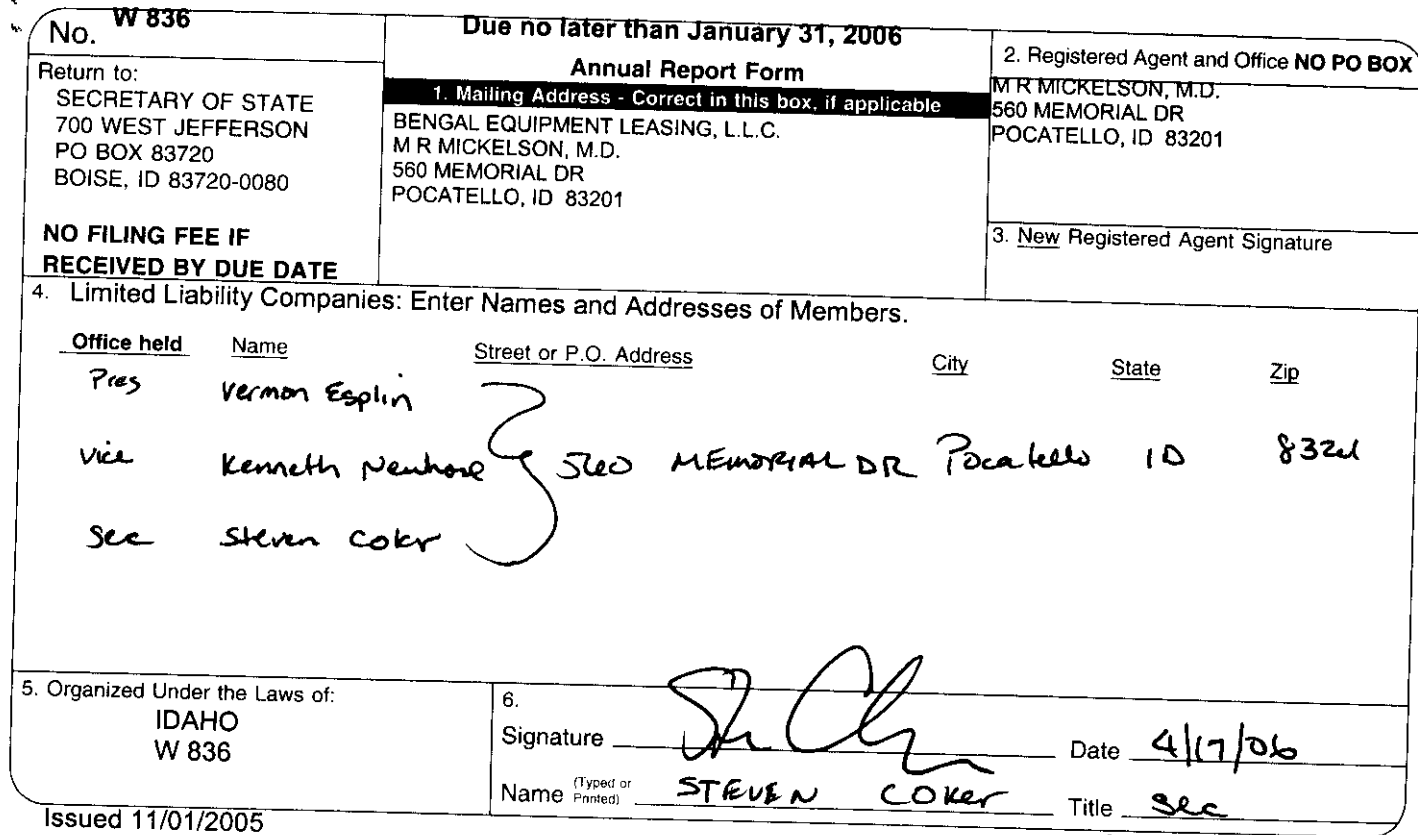 No. W 836
Due no later than January 31, 2006
Annual Report Form
Return to:
SECRETARY OF STATE
700 WEST JEFFERSON
PO BOX 83720
BOISE, ID 83720-0080
NO FILING FEE IF
RECEIVED BY DUE DATE
1. Mailing Address - Correct in this box, if applicable
BENGAL EQUIPMENT LEASING, L.L.C.
M R MICKELSON, M.D.
560 MEMORIAL DR
POCATELLO, ID 83201
2. Registered Agent and Office NO PO BOX
M R MICKELSON, M.D.
560 MEMORIAL DR
POCATELLO, ID 83201
3. New Registered Agent Signature
4. Limited Liability Companies: Enter Names and Addresses of Members.
Office held Name Street or P.O. Address City State Zip
Pres Vernon Esplin
Vice Kenneth 560 MEMORIAL DR Pocatello ID 83201
Sec Steven Coker
5. Organized Under the Laws of:
IDAHO
W 836
6.
Signature Date 4/17/06
Name (Typed or Printed) STEVEN COKER Title Sec
Issued 11/01/2005